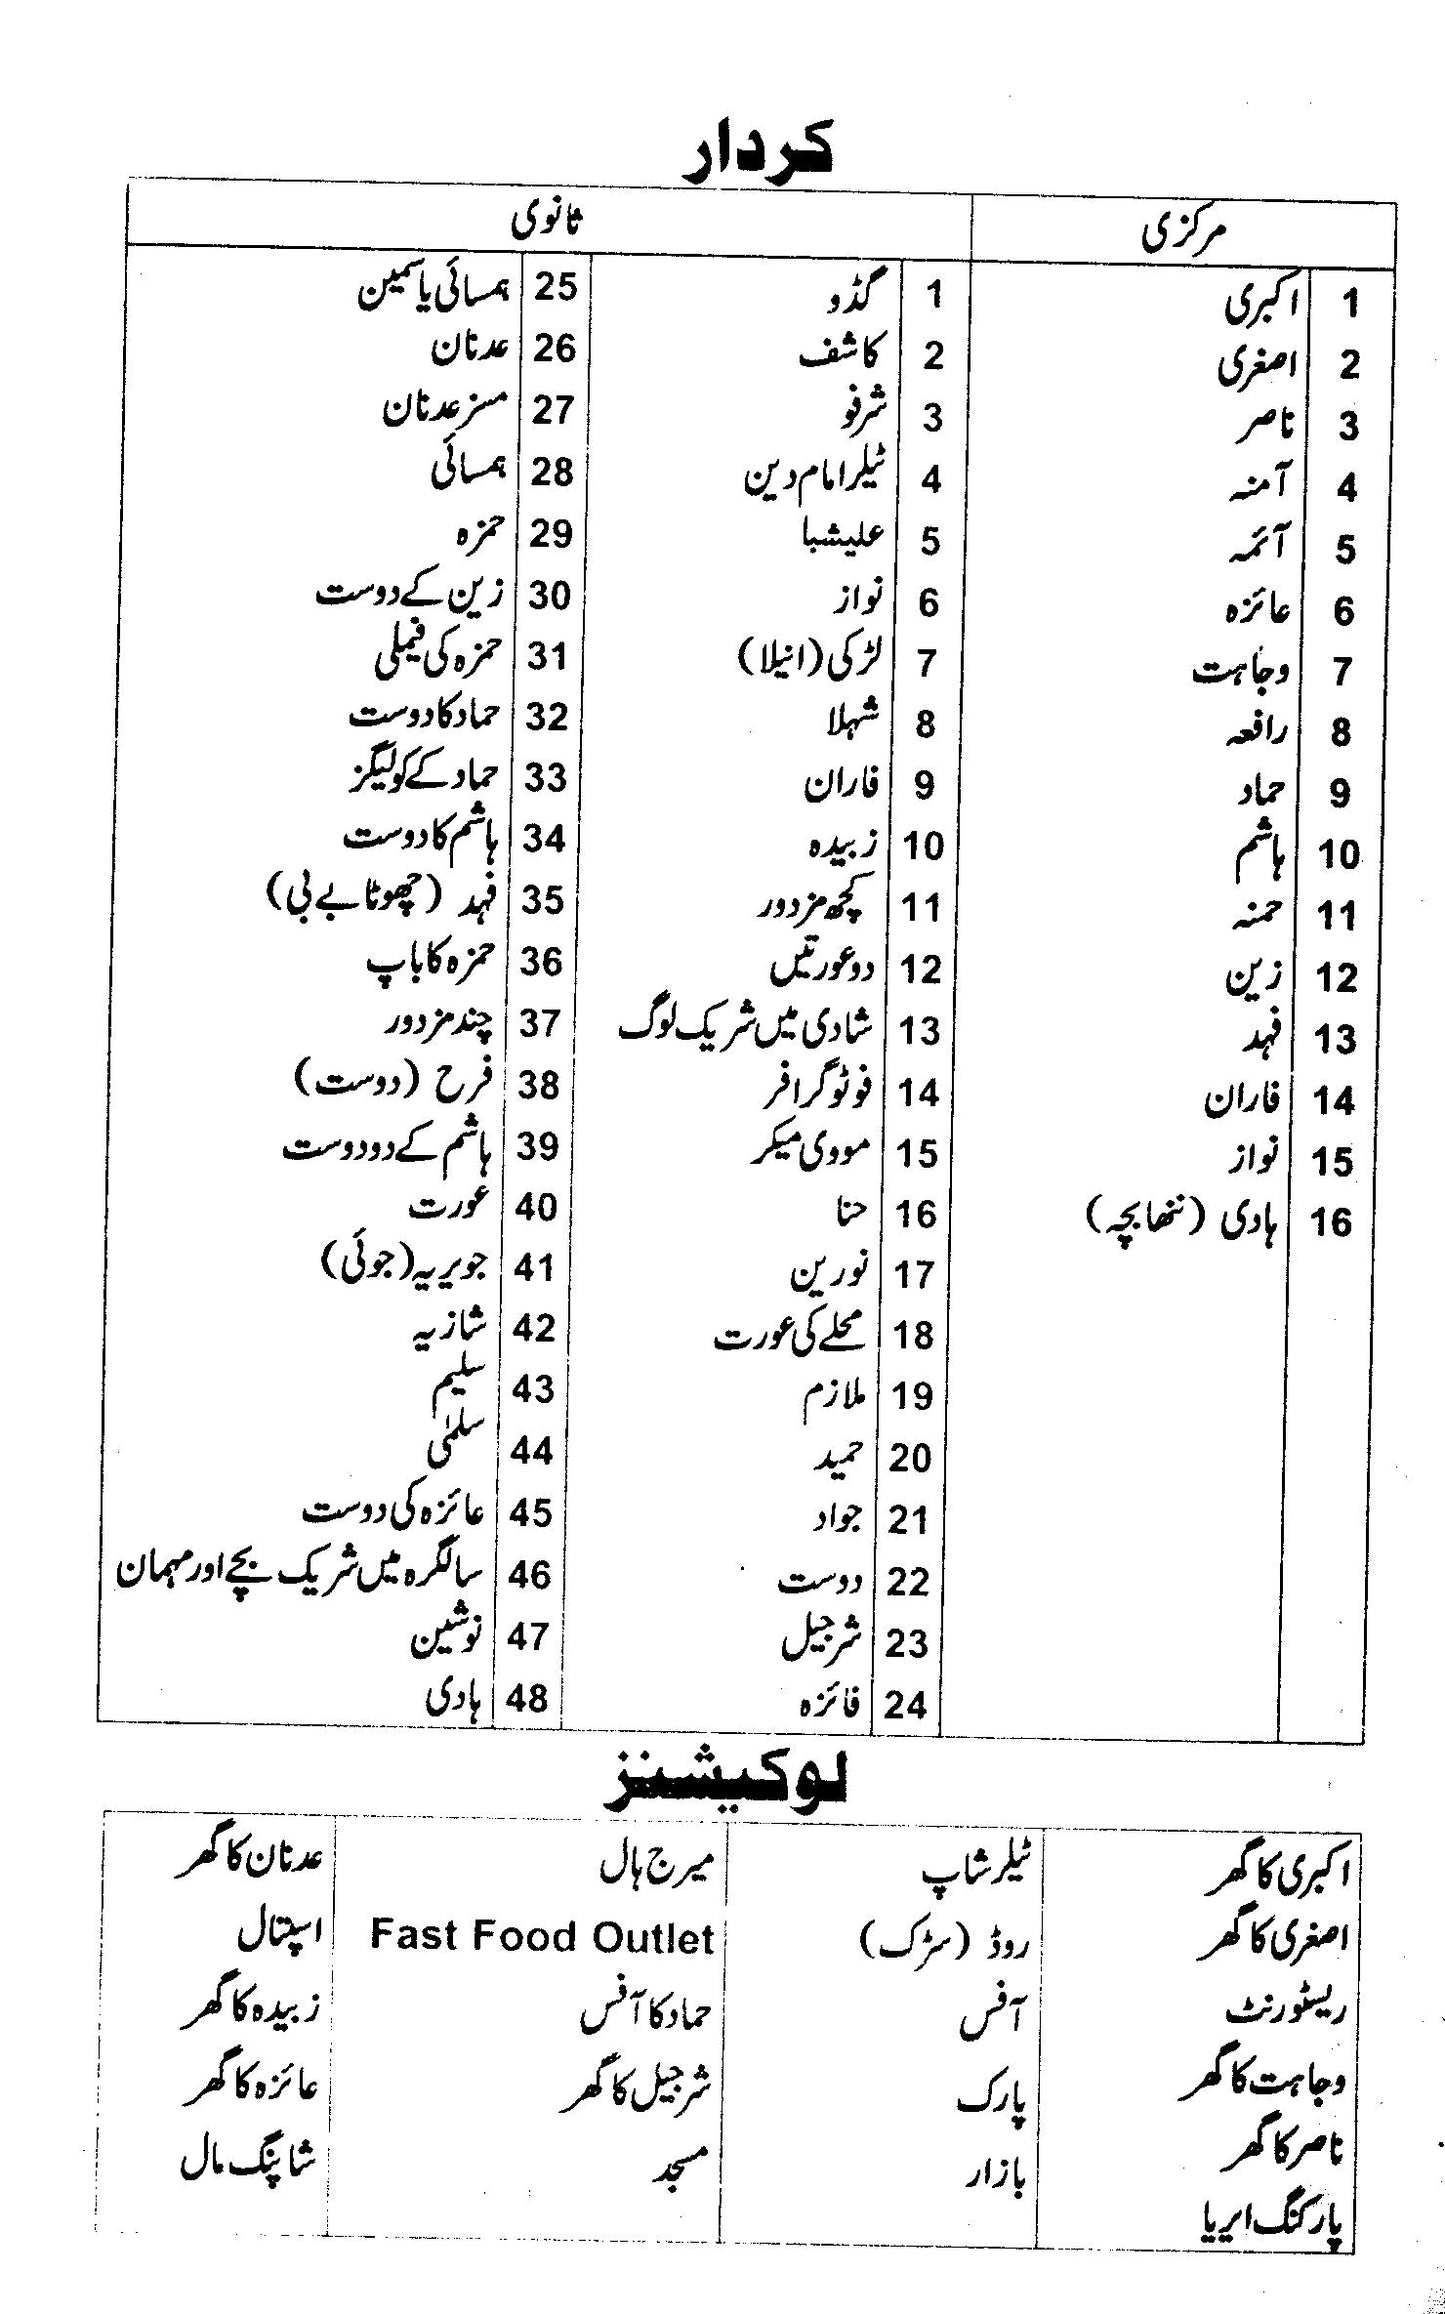 کردار
مرکزی
1 اکبری
2 اصغری
3 ناصر
4 آمنہ
5 آئمہ
6 عائزہ
7 وجاہت
8 رافعہ
9 حماد
10 ہاشم
11 حمنہ
12 زین
13 فہد
14 فاران
15 نواز
16 ہادی (ننھا بچہ)
ثانوی
1 گڈو
2 کاشف
3 شرفو
4 ٹیلر امام دین
5 علیشبا
6 نواز
7 لڑکی (انیلا)
8 شہلا
9 فاران
10 زبیدہ
11 کچھ مزدور
12 دو عورتیں
13 شادی میں شریک لوگ
14 فوٹوگرافر
15 مووی میکر
16 حنا
17 نورین
18 محلے کی عورت
19 ملازم
20 حمید
21 جواد
22 دوست
23 شرجیل
24 فائزہ
25 ہمسائی یاسمین
26 عدنان
27 مسز عدنان
28 ہمسائی
29 حمزہ
30 زین کے دوست
31 حمزہ کی فیملی
32 حماد کا دوست
33 حماد کے کولیگز
34 ہاشم کا دوست
35 فہد (چھوٹا بے بی)
36 حمزہ کا باپ
37 چند مزدور
38 فرح (دوست)
39 ہاشم کے دو دوست
40 عورت
41 جویریہ (جوئی)
42 شازیہ
43 سلیم
44 سلمٰی
45 عائزہ کی دوست
46 سالگرہ میں شریک بچے اور مہمان
47 نوشین
48 ہادی
لوکیشنز
اکبری کا گھر
اصغری کا گھر
ریسٹورنٹ
وجاہت کا گھر
ناصر کا گھر
پارکنگ ایریا
ٹیلر شاپ
روڈ (سڑک)
آفس
پارک
بازار
میرج ہال
Fast Food Outlet
حماد کا آفس
شرجیل کا گھر
مسجد
عدنان کا گھر
اسپتال
زبیدہ کا گھر
عائزہ کا گھر
شاپنگ مال